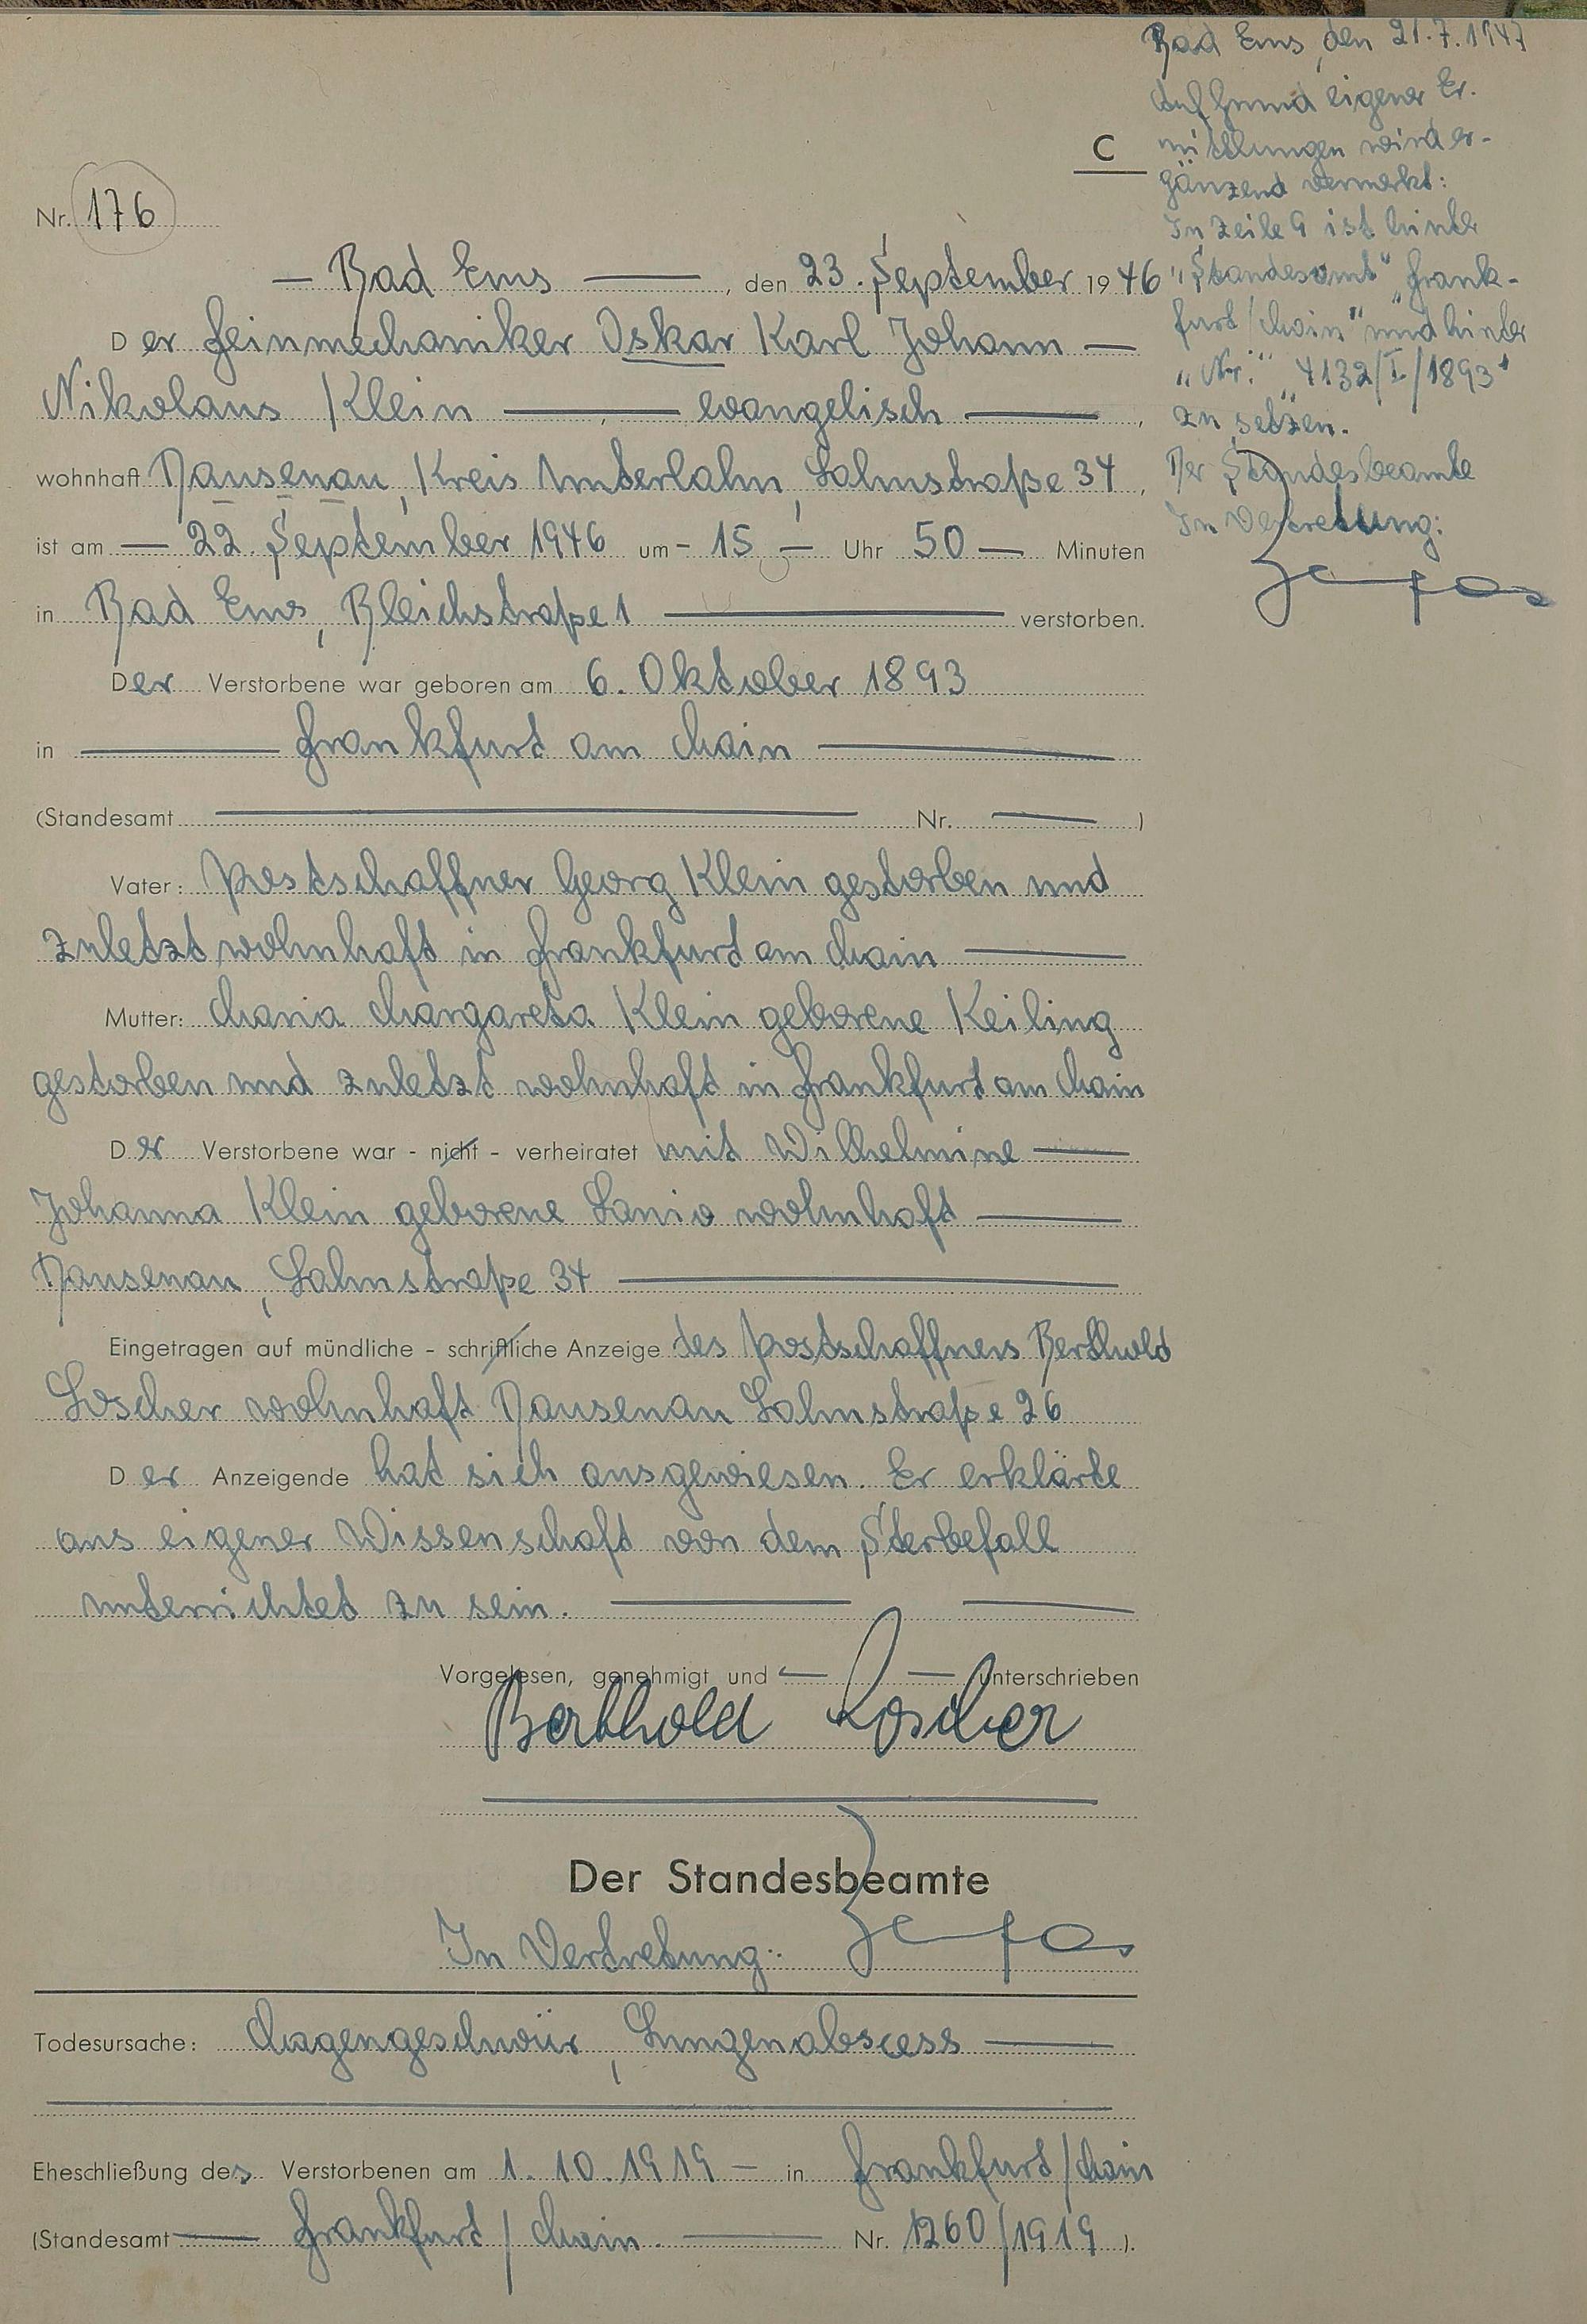 C
Nr. 176
— Bad Ems —, den 23. September 1946
Der Feinmechaniker Oskar Karl Johann —
Nikolaus Klein —, — evangelisch —,
wohnhaft Dausenau, Kreis Unterlahn, Lahnstraße 34,
ist am — 22. September 1946 um - 15 — Uhr 50 — Minuten
in Bad Ems, Bleichstraße 1 — verstorben.
Der Verstorbene war geboren am 6. Oktober 1893
in — Frankfurt am Main —
(Standesamt — Nr. — )
Vater: Postschaffner Georg Klein gestorben und
zuletzt wohnhaft in Frankfurt am Main —
Mutter: Maria Margareta Klein geborene Keiling
gestorben und zuletzt wohnhaft in Frankfurt am Main
Der Verstorbene war - nicht - verheiratet mit Wilhelmine —
Johanna Klein geborene Lanio wohnhaft —
Dausenau, Lahnstraße 34 —
Eingetragen auf mündliche - schriftliche Anzeige des Postschaffners Berthold
Loscher wohnhaft Dausenau Lahnstraße 26
Der Anzeigende hat sich ausgewiesen. Er erklärte
aus eigener Wissenschaft von dem Sterbefall
unterrichtet zu sein. — —
Vorgelesen, genehmigt und — — unterschrieben
Berthold Loscher
Der Standesbeamte
In Vertretung:
Todesursache: Magengeschwür, Lungenabscess —
Eheschließung des Verstorbenen am 1. 10. 1919 — in Frankfurt/Main
(Standesamt — Frankfurt/Main. — Nr. 1260/1919 ).
Bad Ems, den 21.7.1947
Auf Grund eigener Er-
mittlungen wird er-
gänzend vermerkt:
In Zeile 9 ist hinter
"Standesamt" "Frank-
furt/Main" und hinter
"Nr." "4132/I/1893"
zu setzen.
Der Standesbeamte
In Vertretung: